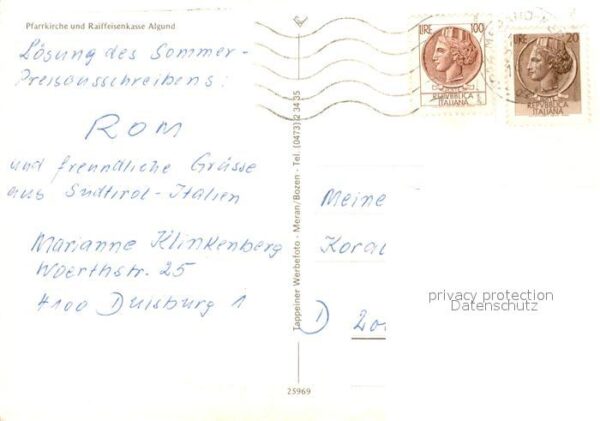 Pfarrkirche und Raiffeisenkasse Algund
Lösung des Sommer-
Preisausschreibens:
ROM
und freundliche Grüsse
aus Südtirol-Italien
Marianne Klinkenberg
Woerthstr. 25
4100 Duisburg 1
Tappeiner Werbefoto - Meran/Bozen - Tel. (0473) 2 34 35
25969
LIRE 100
REPVBBLICA
ITALIANA
LIRE 20
REPVBBLICA
ITALIANA
Meine
Kora
D
privacy protection
Datenschutz